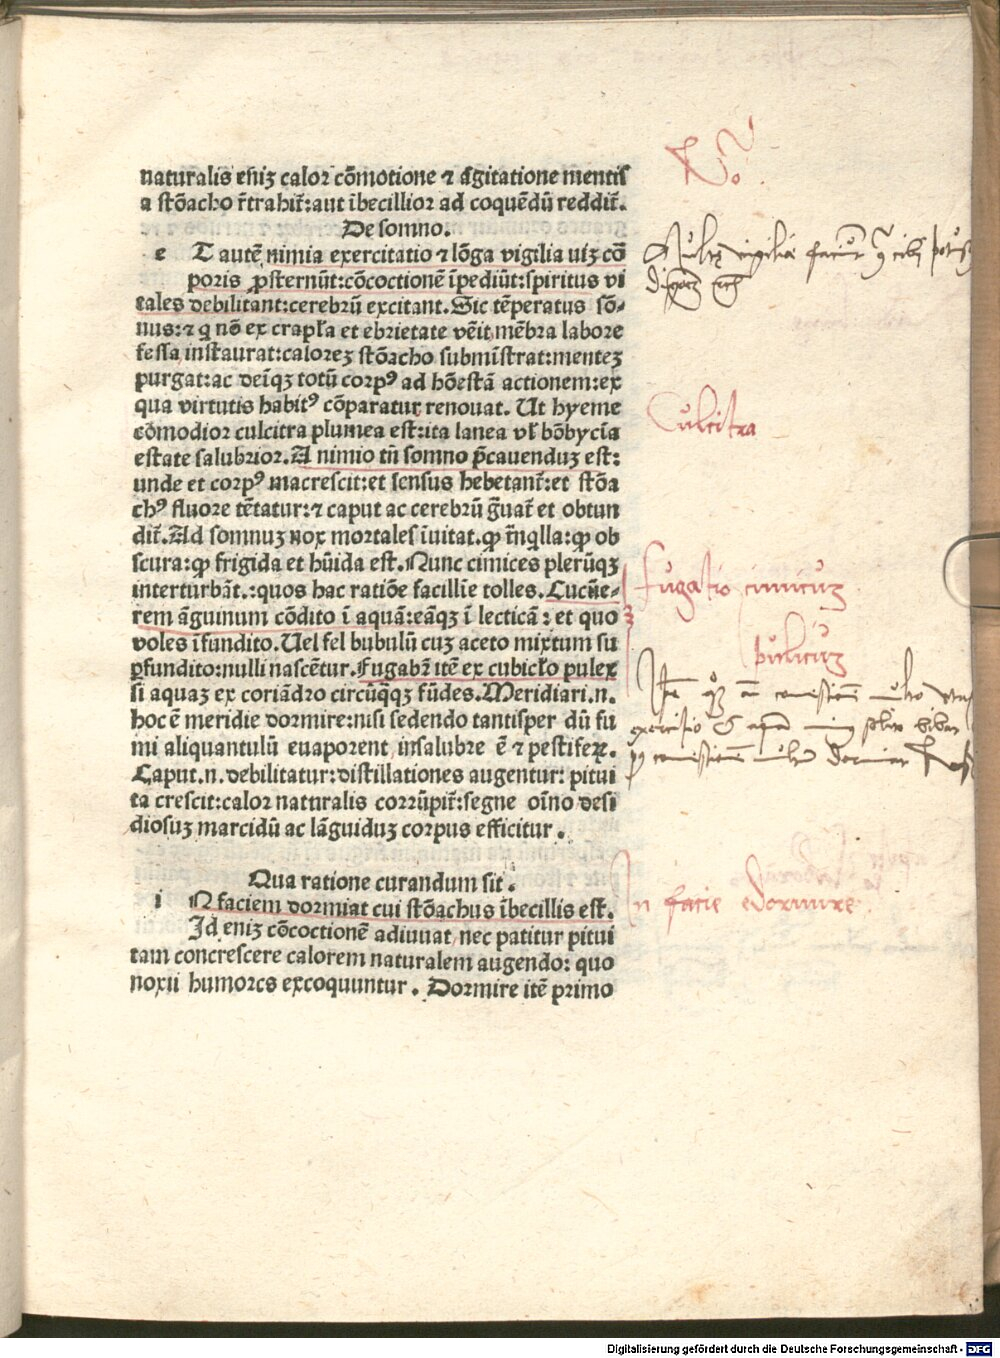 naturalis eñiꝫ calor cōmotione ⁊ agitatione mentis
a stōacho r̄trahit̄:aut ībecillior ad coquēdū reddit̄.
De somno.
e T autē nimia exercitatio ⁊ lōga vigilia uiꝫ cō
poris ꝓsternūt:cōcoctionē īpediūt:spiritus vi
tales debilitant:cerebrū excitant.Sic tēperatus sō-
nus:⁊ q nō ex crapl̄a et ebrietate vēit,mēbra labore
fessa instaurat:caloreꝫ stōacho submīstrat:menteꝫ
purgat:ac deīqꝫ totū corpꝰ ad hōestā actionem:ex
qua virtutis habitꝰ cōparatur renouat. Ut hyeme
cōmodior culcitra plumea est:ita lanea vl̄ bōbycīa
estate salubrior.A nimio tn̄ somno p̄cauenduꝫ est:
unde et corpꝰ macrescit:et sensus hebetant̄:et stōa
chꝰ fluore tētatur:⁊ caput ac cerebrū g̃uat̄ et obtun
dit̄.Ad somnuꝫ nox mortales īuitat.qꝙ tñqlla:qꝙ ob
scura:qꝙ frigida et hūida est.Nunc cimices plerūqꝫ
interturbāt.:quos hac ratiōe facillīe tolles. Cucūe-
rem āguinum cōdito ī aquā:eāqꝫ ī lecticā: et quo
voles īfundito.Uel fel bubulū cuꝫ aceto mixtum su
ꝑfundito:nulli nascētur.Fugabr̄ itē ex cubicl̄o pulex
si aquaꝫ ex coriādro circūqqꝫ fūdes.Meridiari.n.
hoc ē meridie dormire:nisi sedendo tantisper dū fu
mi aliquantulū euaporent,insalubre ē ⁊ pestiferꝝ.
Caput.n.debilitatur:distillationes augentur: pitui
ta crescit:calor naturalis corrūpit̄:segne oīno desi
diosuꝫ marcidū ac lāguiduꝫ corpus efficitur.
Qua ratione curandum sit.
i N faciem dormiat cui stōachus ībecillis est.
Id eniꝫ cōcoctionē adiuuat,nec patitur pitui
tam concrescere calorem naturalem augendo: quo
noxii humores excoquuntur. Dormire itē primo
No
Culcitra
fugatio cimicuꝫ
pulicuꝫ
In facie dormire
Digitalisierung gefördert durch die Deutsche Forschungsgemeinschaft - DFG